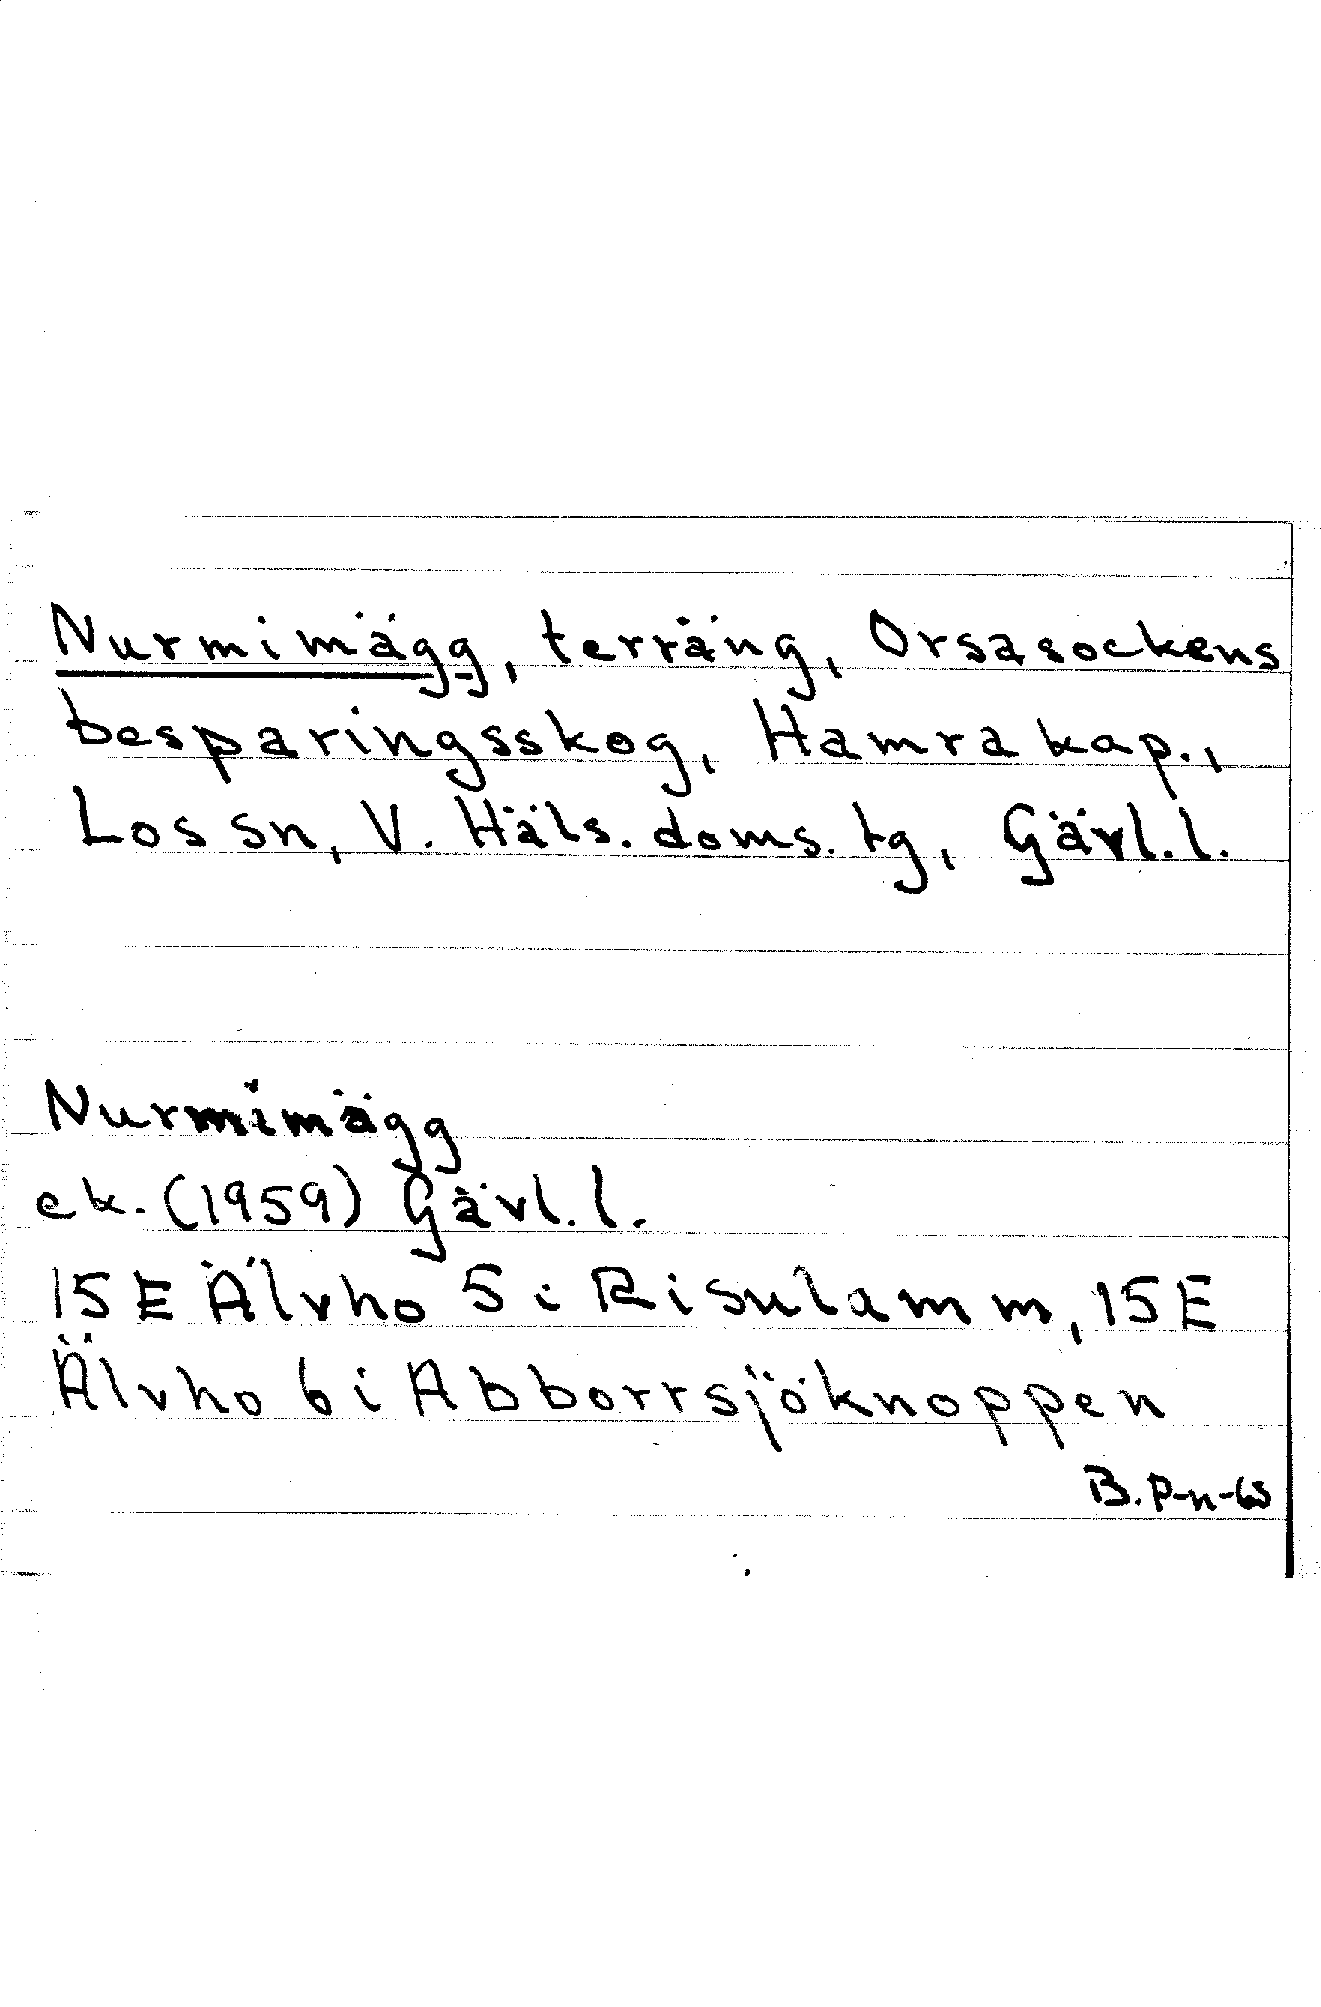 Nurmimägg, terräng, Orsasockens
besparingsskog, Hamra kap.,
Los sn, V. Häls. doms. tg, Gävl. l.
Nurmimägg
ek. (1959) Gävl. l.
15 E Älvho 5 i Risulamm, 15 E
Älvho 6 i Abborrsjöknoppen
B. P-n-65